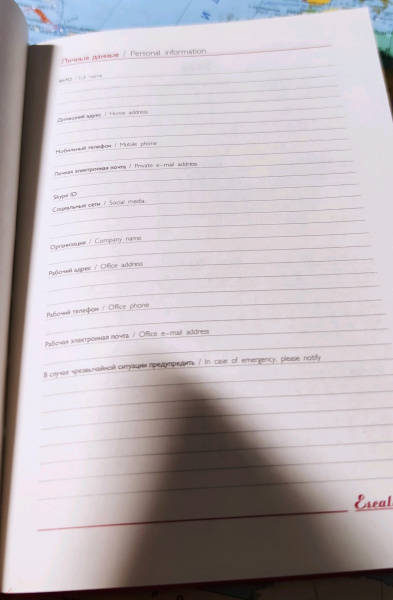 Личные данные / Personal information
Ф.И.О. / Full name
Домашний адрес / Home address
Мобильный телефон / Mobile phone
Личная электронная почта / Private e-mail address
Skype ID
Социальные сети / Social media
Организация / Company name
Рабочий адрес / Office address
Рабочий телефон / Office phone
Рабочая электронная почта / Office e-mail address
В случае чрезвычайной ситуации предупредить / In case of emergency, please notify